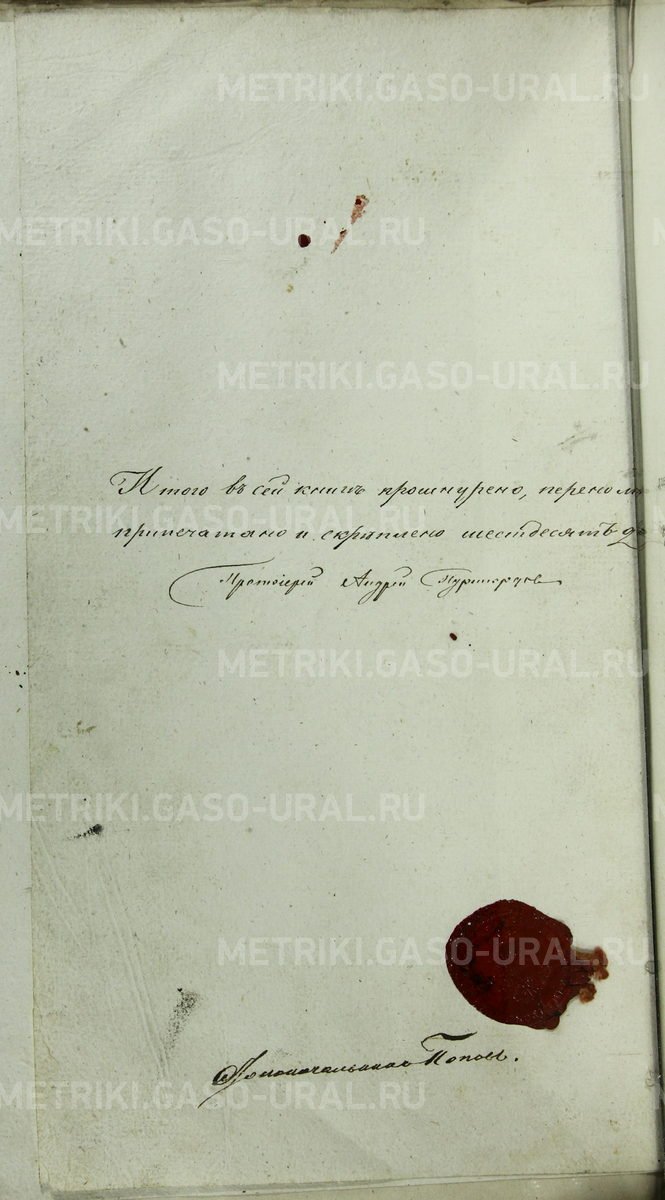 METRIKI.GASO-URAL.RU
METRIKI.GASO-URAL.RU
METRIKI.GASO-URAL.RU
Итого въ сей книгѣ прошнурено,
METRIKI.GASO-URAL.RU
припечатано и скрѣплено шестдесятъ
Протоіерей Андрей
METRIKI.GASO-URAL.RU
METRIKI.GASO-URAL.RU
METRIKI.GASO-URAL.RU
Попов.
METRIKI.GASO-URAL.RU